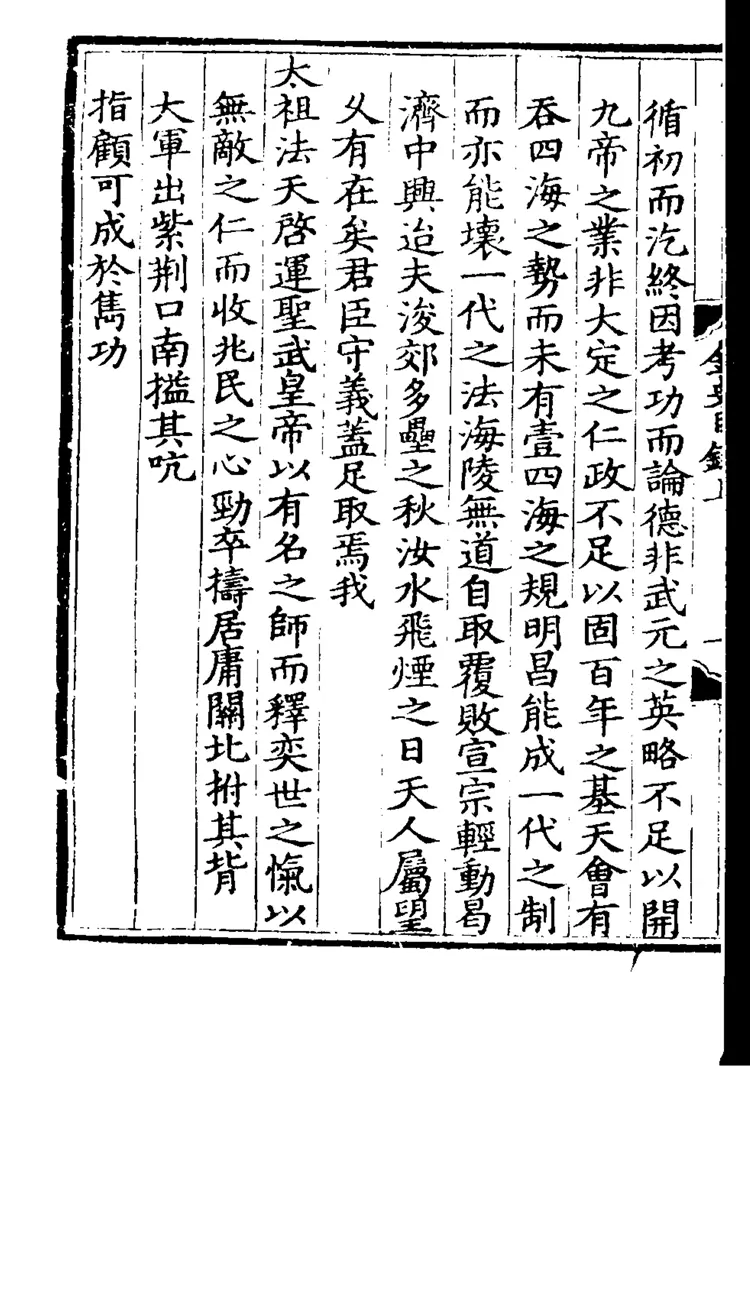 金史目錄上
一
循初而汔終因考功而論德非武元之英略不足以開
九帝之業非大定之仁政不足以固百年之基天會有
吞四海之勢而未有壹四海之規明昌能成一代之制
而亦能壞一代之法海陵無道自取覆敗宣宗輕動曷
濟中興迨夫浚郊多壘之秋汝水飛煙之日天人屬望
乆有在矣君臣守義蓋足取焉我
太祖法天啓運聖武皇帝以有名之師而釋奕世之愾以
無敵之仁而收兆民之心勁卒擣居庸關北拊其背
大軍出紫荆口南搤其吭
指顧可成於雋功